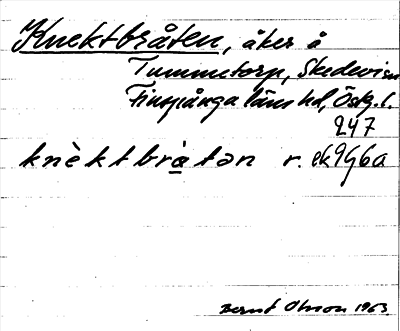 Knektbråten, åker å
Tummetorp, Skedevi sn
Finspånga läns hd, Östg. l.
247
knèktbrà̱tən r. ek 9g6a
Bernt Olsson 1963